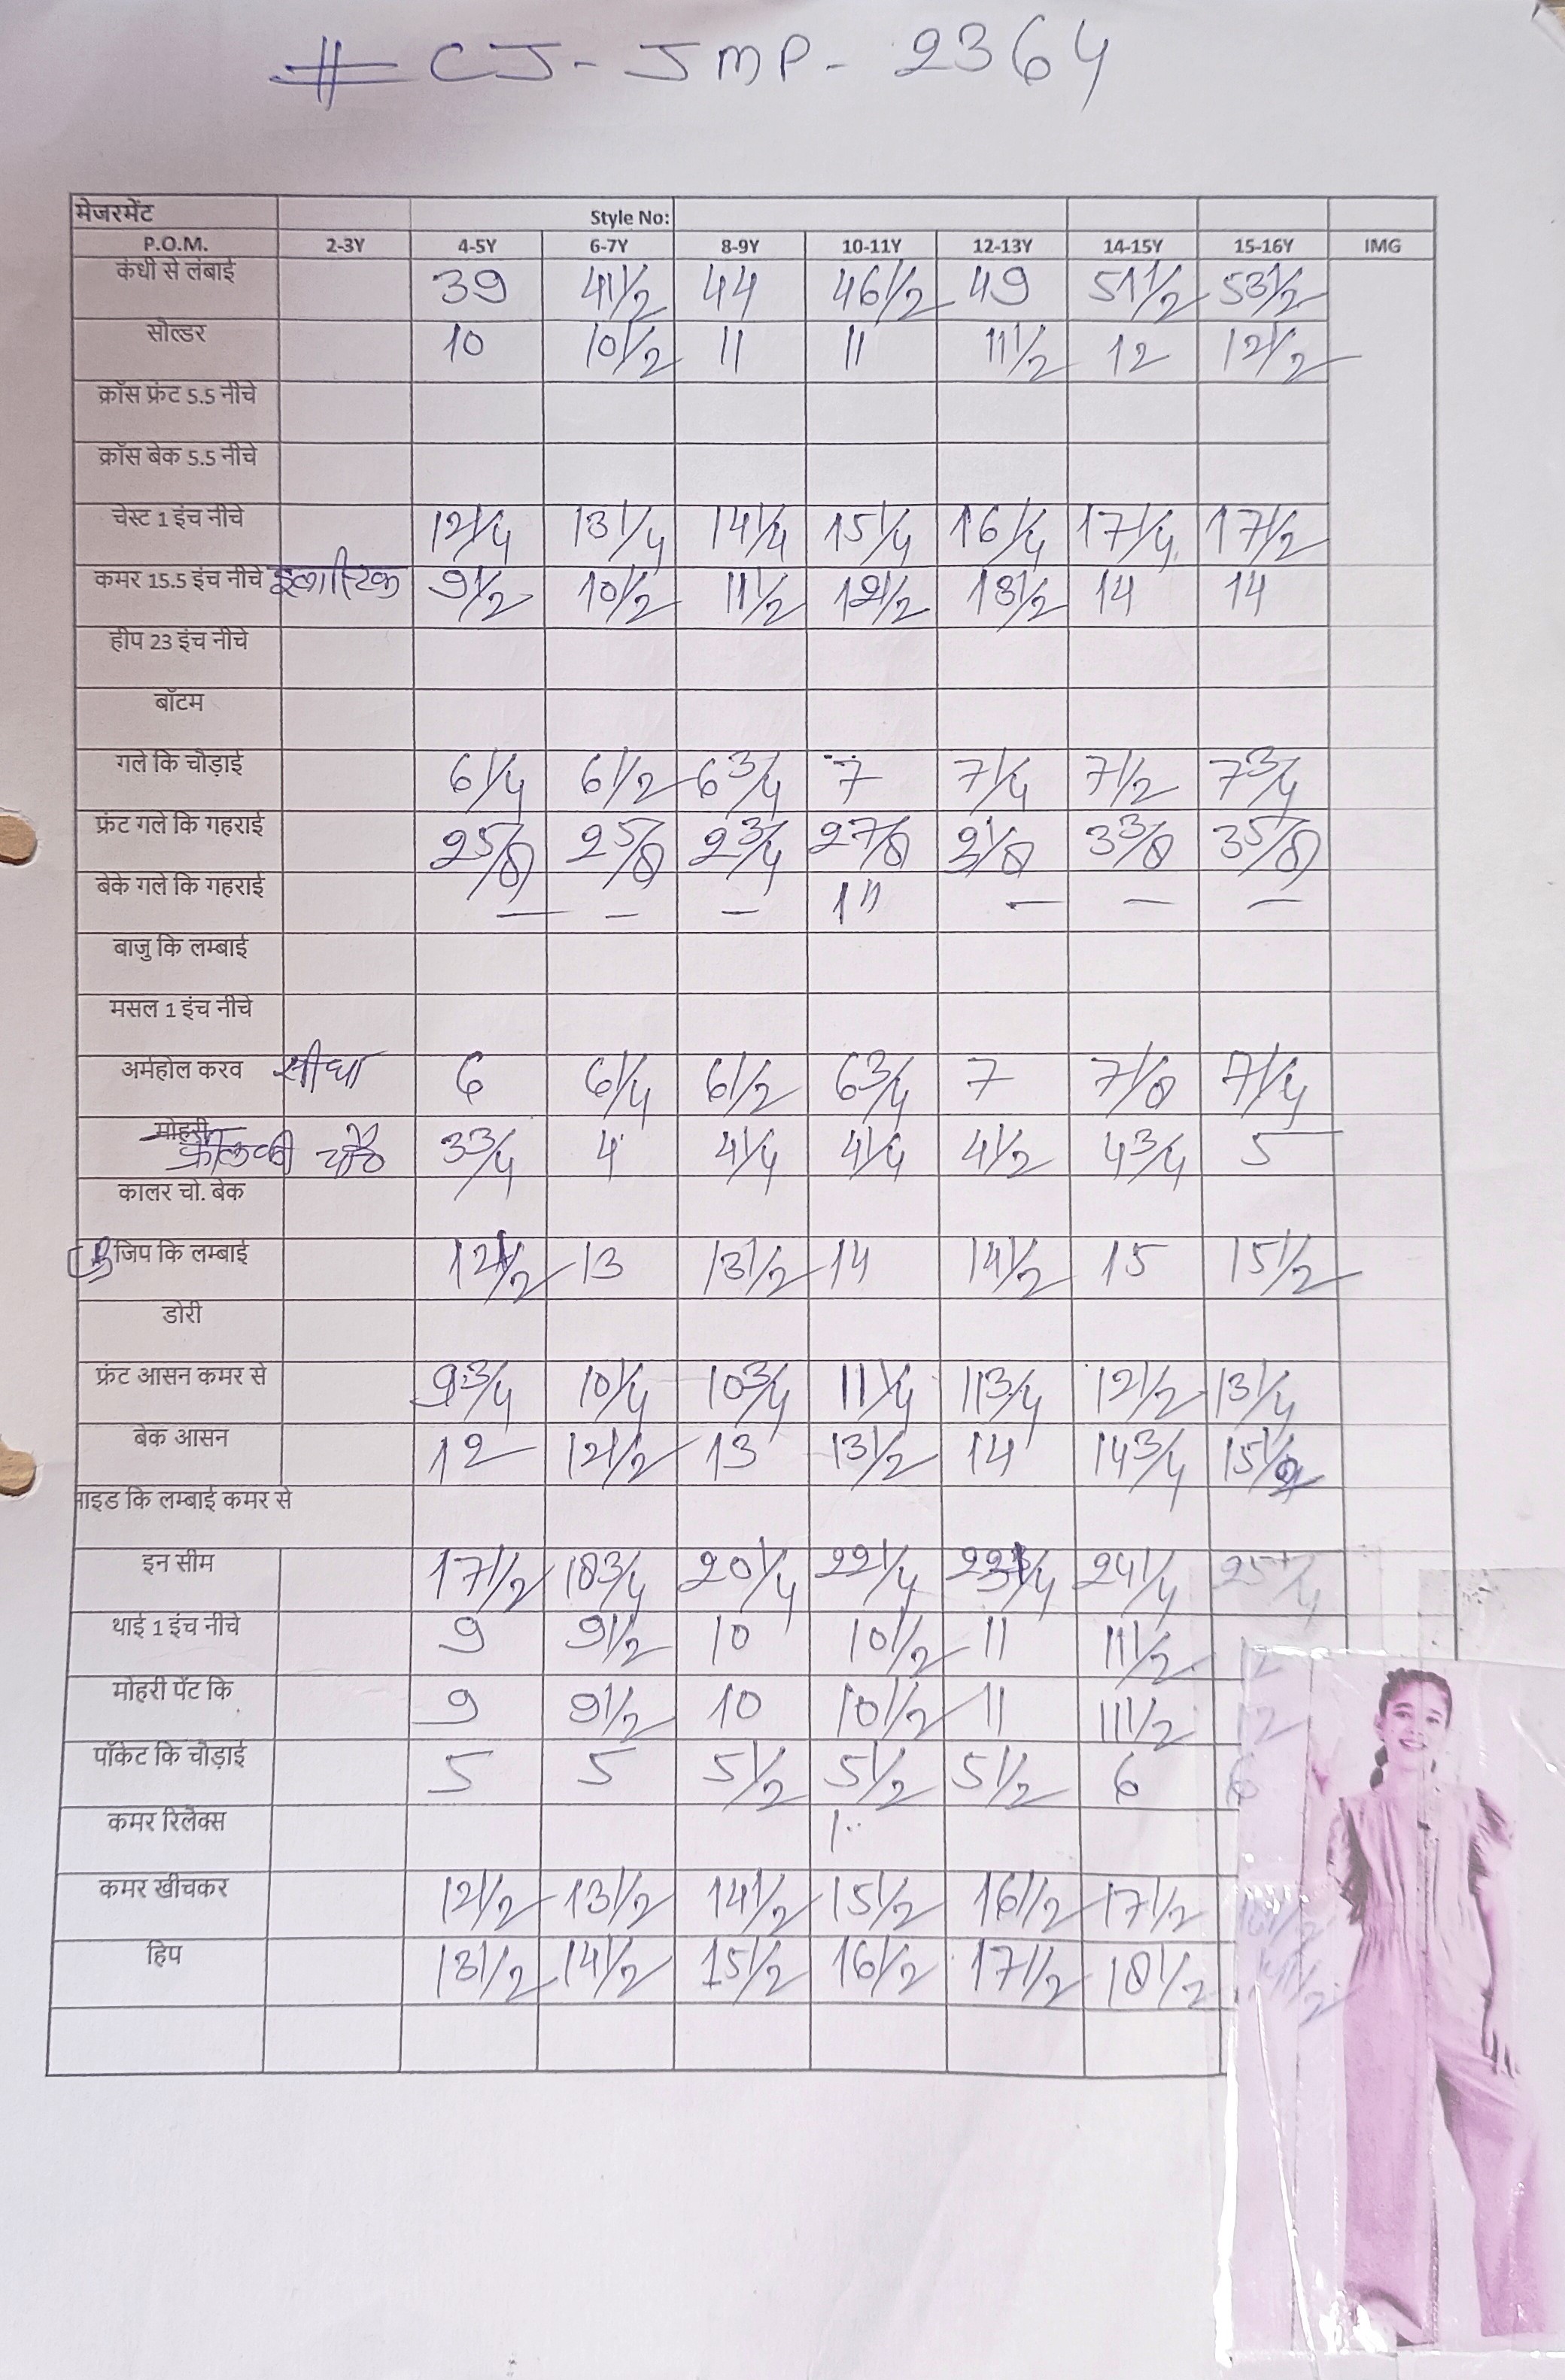 # CJ-JMP-2364
मेजरमेंट Style No:
P.O.M. 2-3Y 4-5Y 6-7Y 8-9Y 10-11Y 12-13Y 14-15Y 15-16Y IMG
कंधी से लंबाई 39 41 1/2 44 46 1/2 49 51 1/2 53 1/2
सोल्डर 10 10 1/2 11 11 11 1/2 12 12 1/2
क्रॉस फ्रंट 5.5 नीचे
क्रॉस बेक 5.5 नीचे
चेस्ट 1 इंच नीचे 12 1/4 13 1/4 14 1/4 15 1/4 16 1/4 17 1/4 17 1/2
कमर 15.5 इंच नीचे इलास्टिक 9 1/2 10 1/2 11 1/2 12 1/2 13 1/2 14 14
हीप 23 इंच नीचे
बॉटम
गले कि चौड़ाई 6 1/4 6 1/2 6 3/4 7 7 1/4 7 1/2 7 3/4
फ्रंट गले कि गहराई 2 5/8 2 5/8 2 3/4 2 7/8 3 1/8 3 3/8 3 5/8
बेके गले कि गहराई — — — 1" — — —
बाजु कि लम्बाई
मसल 1 इंच नीचे
अर्महोल करव सीधा 6 6 1/4 6 1/2 6 3/4 7 7 1/8 7 1/4
मोहरी चौ० 3 3/4 4 4 1/4 4 1/4 4 1/2 4 3/4 5
कालर चो. बेक
जिप कि लम्बाई 12 1/2 13 13 1/2 14 14 1/2 15 15 1/2
डोरी
फ्रंट आसन कमर से 9 3/4 10 1/4 10 3/4 11 1/4 11 3/4 12 1/2 13 1/4
बेक आसन 12 12 1/2 13 13 1/2 14 14 3/4 15 1/2
साइड कि लम्बाई कमर से
इन सीम 17 1/2 18 3/4 20 1/4 22 1/4 24 1/4
थाई 1 इंच नीचे 9 9 1/2 10 10 1/2 11 11 1/2 12
मोहरी पेंट कि 9 9 1/2 10 10 1/2 11 11 1/2 12
पॉकेट कि चौड़ाई 5 5 5 1/2 5 1/2 5 1/2 6 6
कमर रिलेक्स
कमर खीचकर 12 1/2 13 1/2 14 1/2 15 1/2 16 1/2 17 1/2
हिप 13 1/2 14 1/2 15 1/2 16 1/2 17 1/2 18 1/2